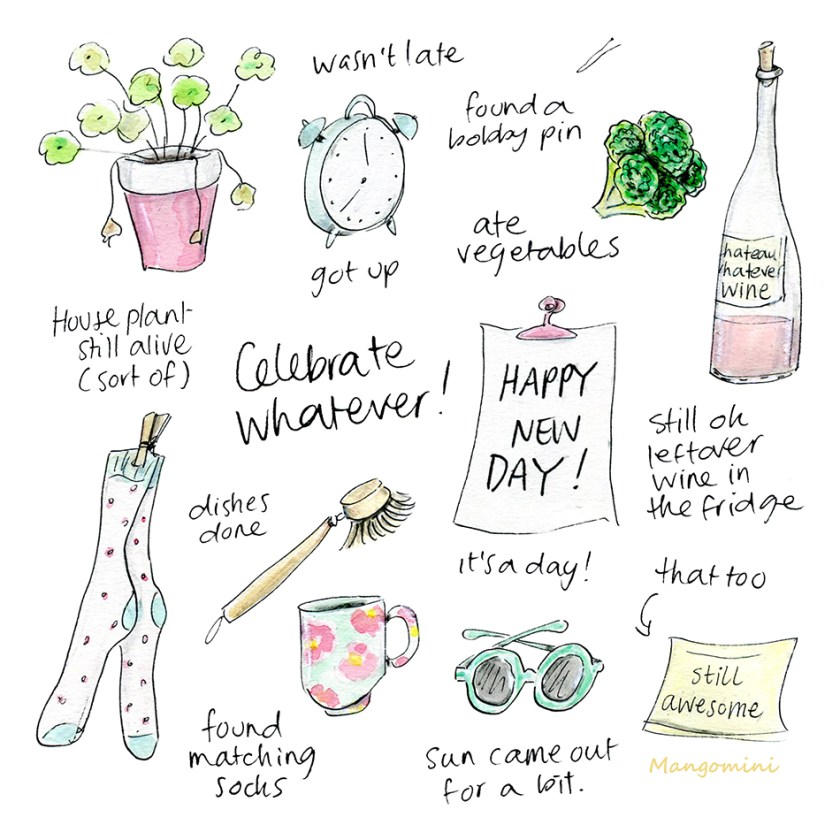 wasn't late
found a
bobby pin
ate
vegetables
hateau
hatever
wine
got up
House plant-
still alive
(sort of)
Celebrate
whatever!
HAPPY
NEW
DAY!
still ok
leftover
wine in
the fridge
dishes
done
it's a day!
that too
still
awesome
found
matching
socks
sun came out
for a bit.
Mangomini